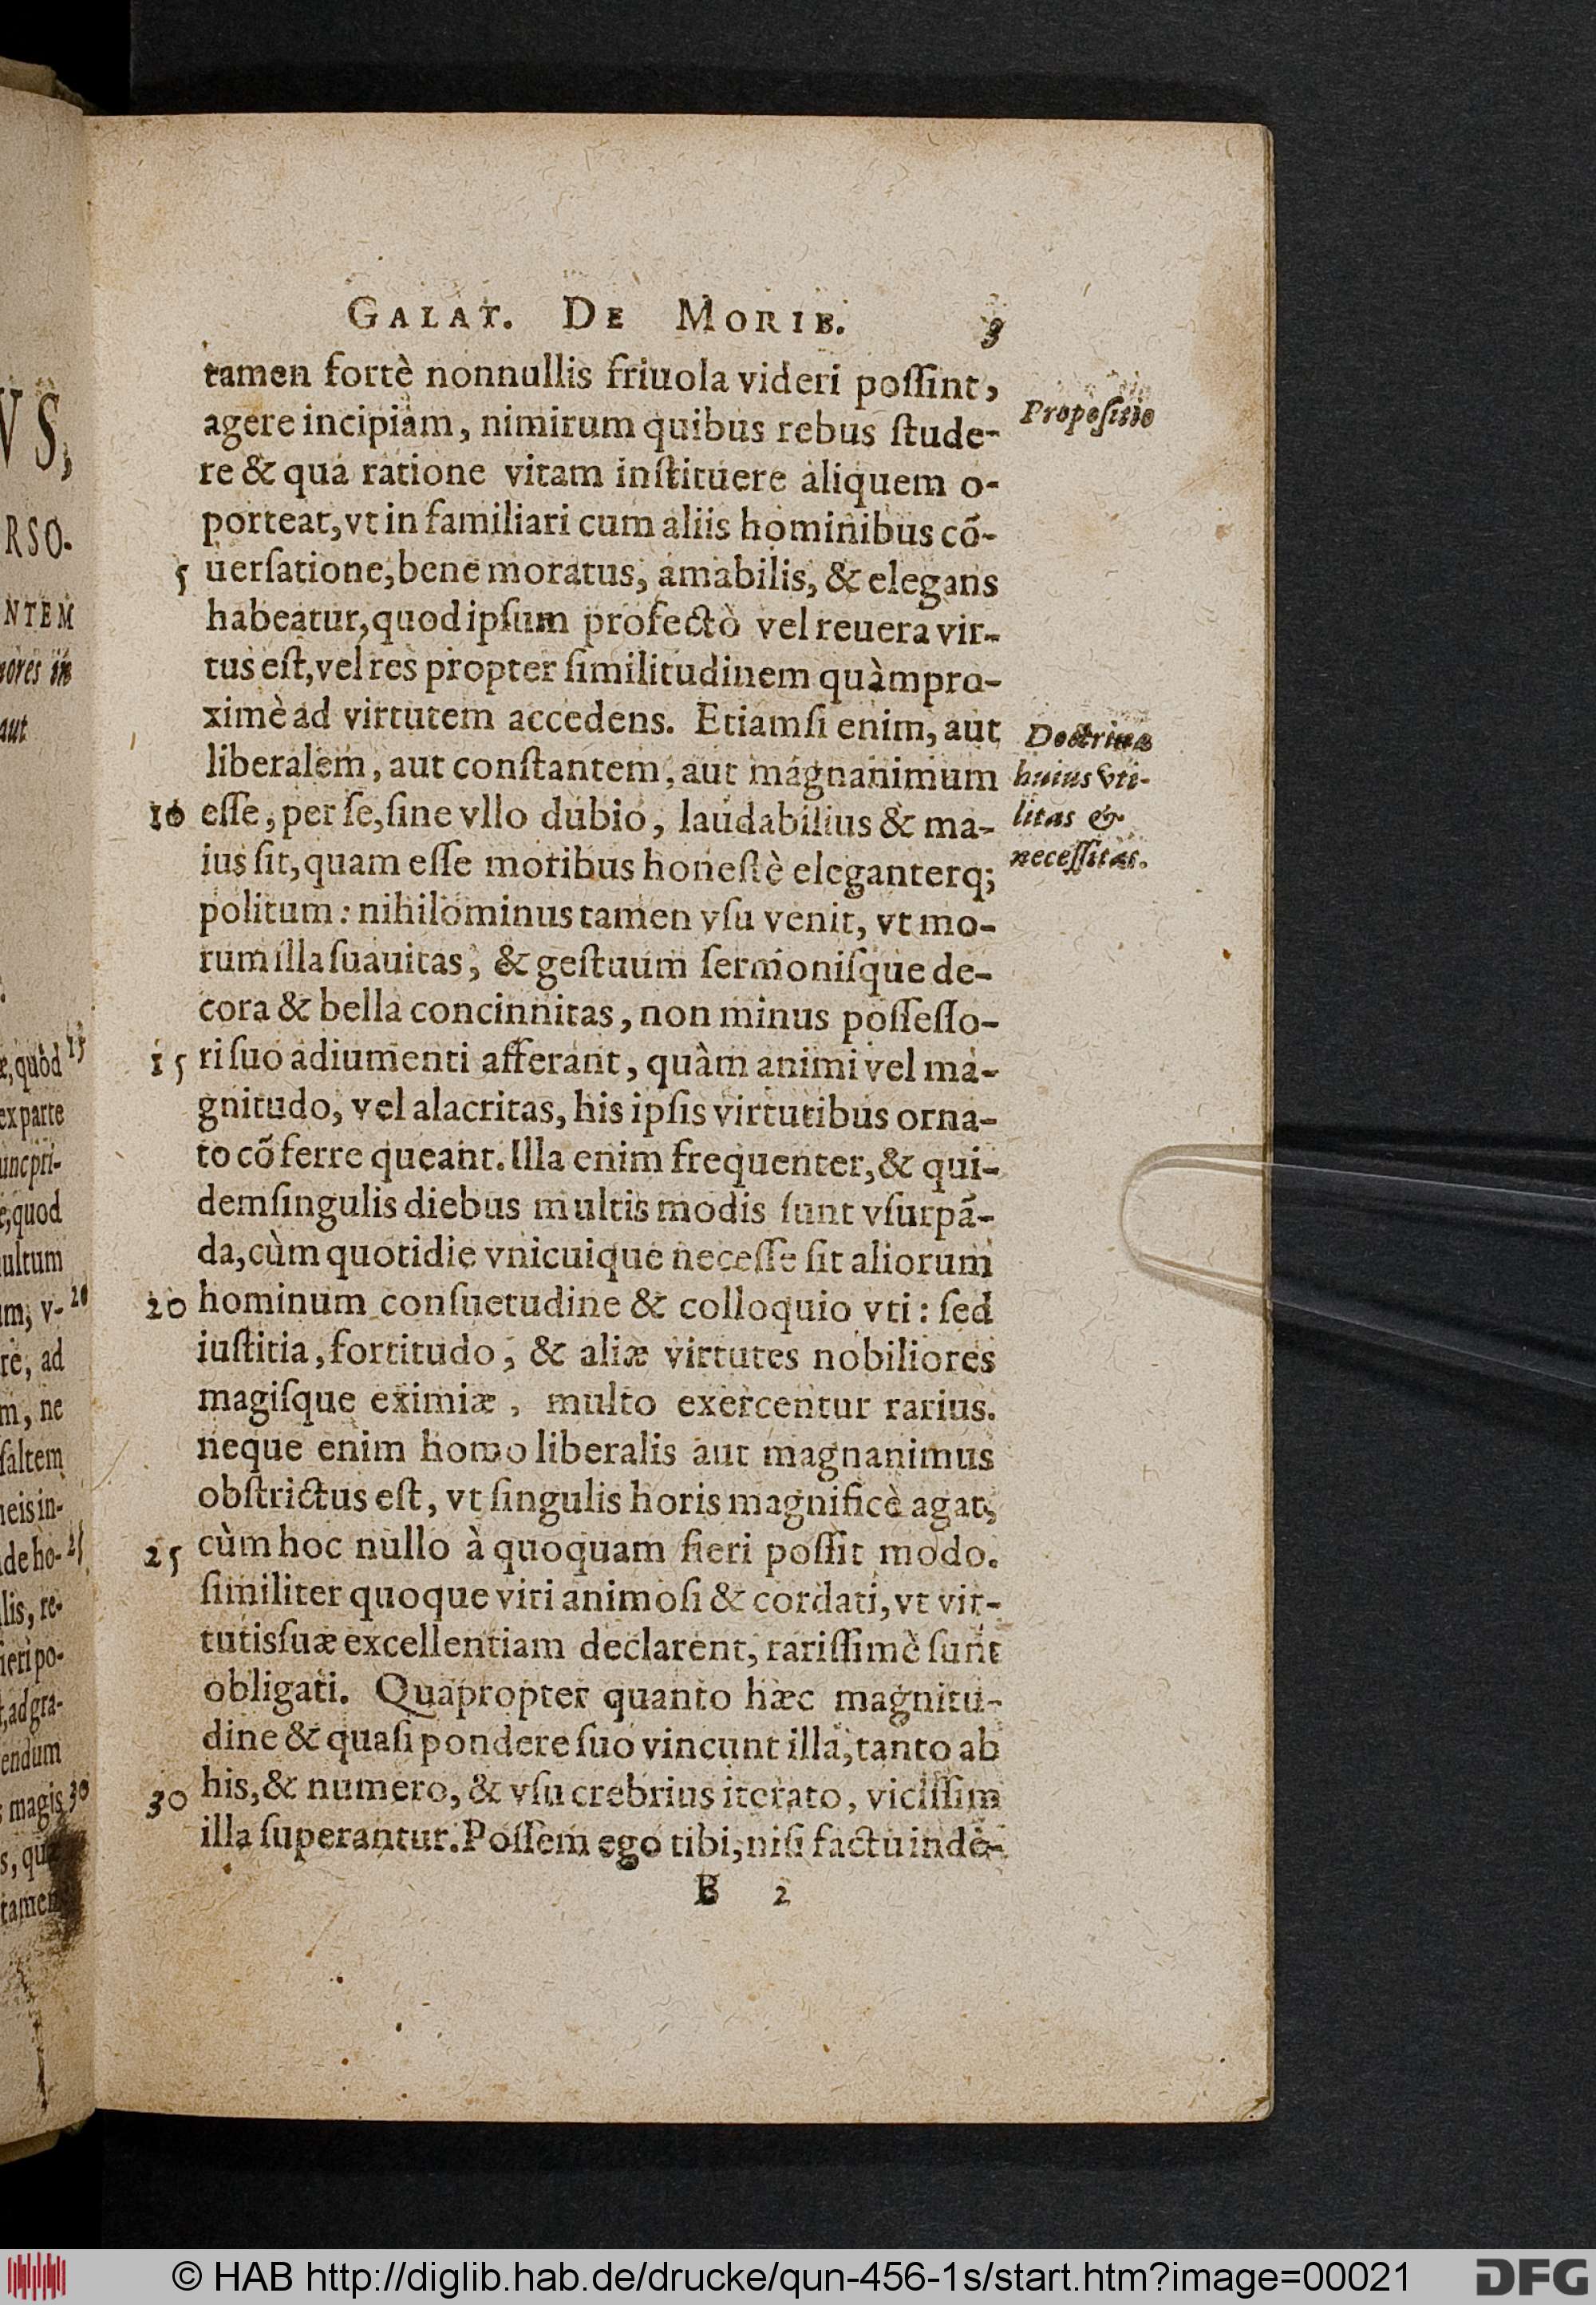 GALAT. DE MORIB. 3
tamen fortè nonnullis friuola videri poſſint,
agere incipiam, nimirum quibus rebus ſtude-
re & qua ratione vitam inſtituere aliquem o-
porteat, vt in familiari cum aliis hominibus cõ-
5 uerſatione, bene moratus, amabilis, & elegans
habeatur, quod ipſum profectò vel reuera vir-
tus eſt, vel res propter ſimilitudinem quàm pro-
ximè ad virtutem accedens. Etiamſi enim, aut
liberalem, aut conſtantem, aut magnanimum
10 eſſe, per ſe, ſine vllo dubio, laudabilius & ma-
ius ſit, quam eſſe moribus honeſtè eleganterq;
politum: nihilominus tamen vſu venit, vt mo-
rum illa ſuauitas, & geſtuum ſermoniſque de-
cora & bella concinnitas, non minus poſſeſſo-
15 ri ſuo adiumenti afferant, quàm animi vel ma-
gnitudo, vel alacritas, his ipſis virtutibus orna-
to cõferre queant. Illa enim frequenter, & qui-
dem ſingulis diebus multis modis ſunt vſurpã-
da, cùm quotidie vnicuique neceſſe ſit aliorum
20 hominum conſuetudine & colloquio vti: ſed
iuſtitia, fortitudo, & aliæ virtutes nobiliores
magiſque eximiæ, multo exercentur rarius.
neque enim homo liberalis aut magnanimus
obſtrictus eſt, vt ſingulis horis magnificè agat,
25 cùm hoc nullo à quoquam fieri poſſit modo.
ſimiliter quoque viri animoſi & cordati, vt vir-
tutis ſuæ excellentiam declarent, rariſſimè ſunt
obligati. Quapropter quanto hæc magnitu-
dine & quaſi pondere ſuo vincunt illa, tanto ab
30 his, & numero, & vſu crebrius iterato, viciſſim
illa ſuperantur. Poſſem ego tibi, niſi factu inde-
B 2
Propoſitio
Doctrinæ
huius vti-
litas &
neceſſitas.
VS,
RSO-
NTEM
aut
quòd 15
ex parte
quod
ultum
v- 20
ad
ne
ſaltem
in-
ho- 25
re-
po-
magis 30
tamen
© HAB http://diglib.hab.de/drucke/qun-456-1s/start.htm?image=00021
DFG